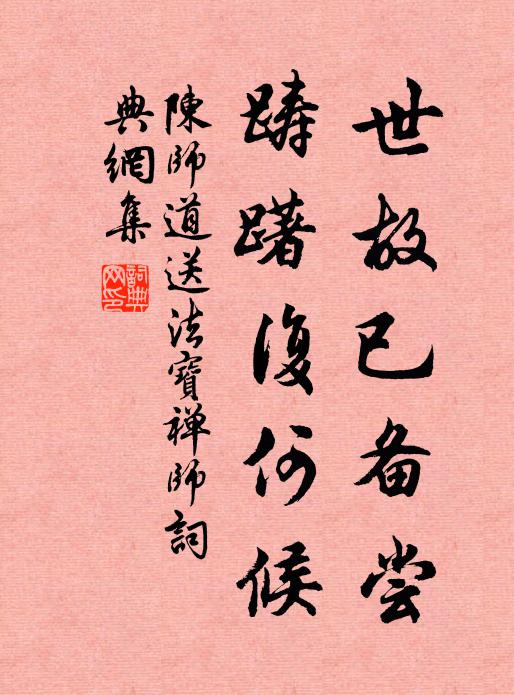 世故已备尝
踌躇復何候
陳師道送法寶禅師詞
典網集
詞典网印